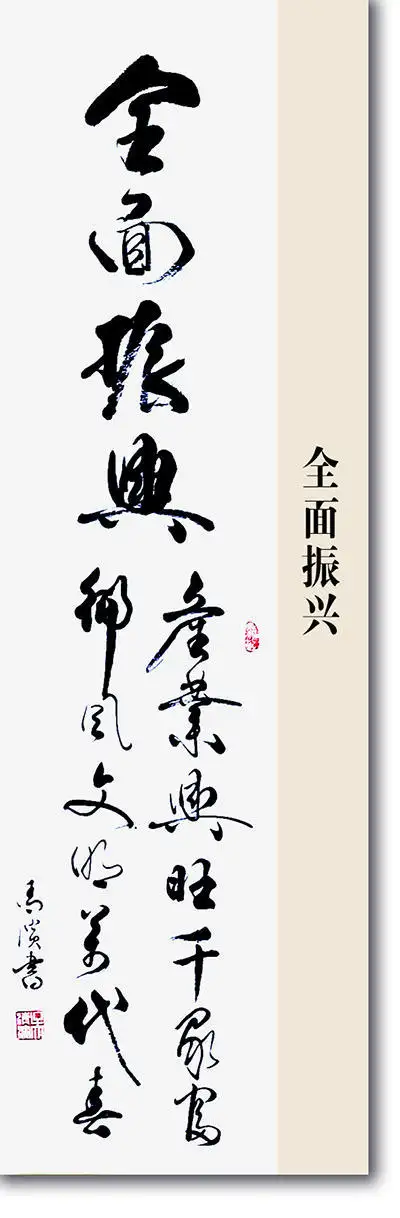 全面振兴
全面振興
產業興旺千家富
鄉風文明萬代春
書